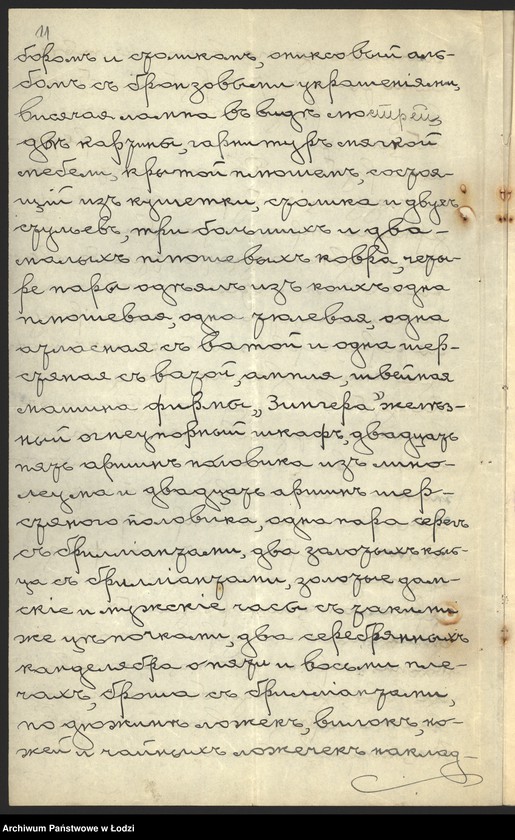 11
боромъ и столикомъ, ониксовый аль-
бомъ съ бронзовыми украшенiями,
висячая лампа въ видѣ люстры,
двѣ картины, гарнитуръ мягкой
мебели, крытой плюшемъ, состоя-
щiй изъ кушетки, столика и двухъ
стульевъ, три большихъ и два
малыхъ плюшевыхъ ковра, четы-
ре пары одѣялъ изъ коихъ одна
плюшевая, одна тюлевая, одна
атласная съ ватой и одна шер-
стяная съ ватой, ампля, швейная
машина фирмы „Зингера" желѣз-
ный огнеупорный шкафъ, двадцать
пять аршинъ половика изъ лино-
леума и двадцать аршинъ шер-
стяного половика, одна пара серегъ
съ бриллiантами, два золотыхъ коль-
ца съ бриллiантами, золотые дам-
скiе и мужскiе часы съ такими
же цѣпочками, два серебрянныхъ
канделябра о пяти и восьми пле-
чахъ, брошь съ бриллiантами,
по дюжинѣ ложекъ, вилокъ, но-
жей и чайныхъ ложечекъ наклад-
Archiwum Państwowe w Łodzi